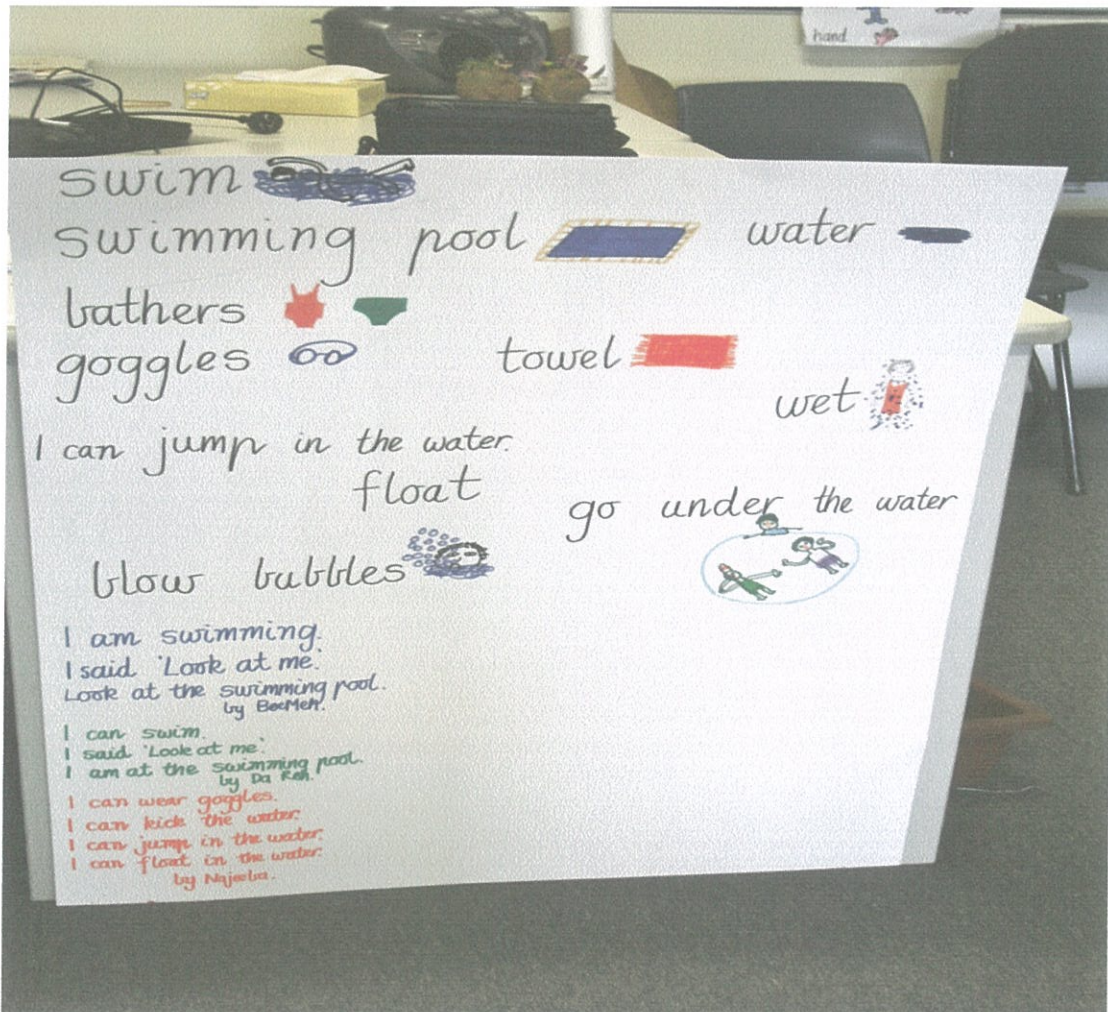 hand
swim
swimming pool water
bathers
goggles towel
wet
I can jump in the water.
float
go under the water
blow bubbles
I am swimming.
I said 'Look at me.'
Look at the swimming pool.
by BeeMeh.
I can swim.
I said 'Look at me'.
I am at the swimming pool.
by Da Reh.
I can wear goggles.
I can kick the water.
I can jump in the water.
I can float in the water.
by Najeeba.